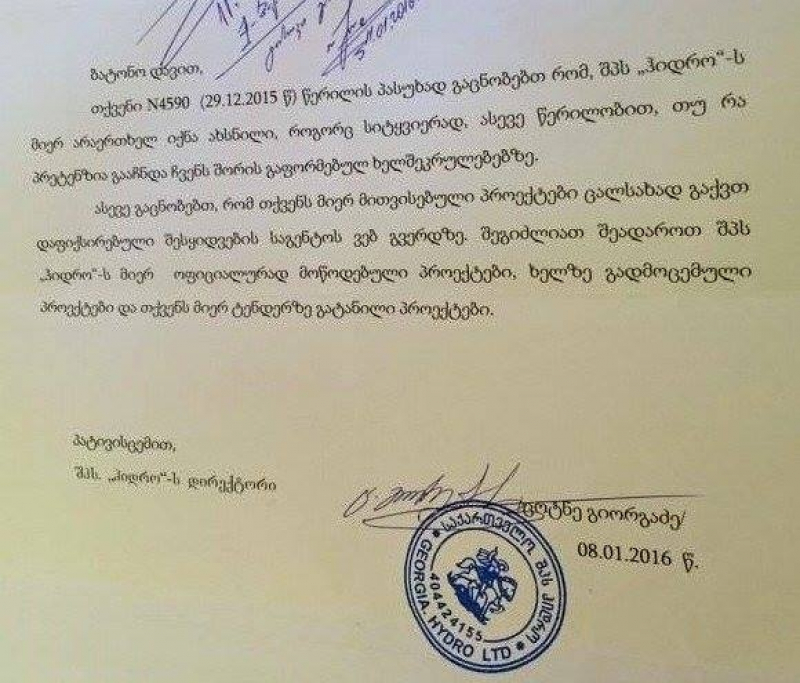 ბატონო დავით,
თქვენი N4590 (29.12.2015 წ) წერილის პასუხად გაცნობებთ რომ, შპს „ჰიდრო“-ს
მიერ არაერთხელ იქნა ახსნილი, როგორც სიტყვიერად, ასევე წერილობით, თუ რა
პრეტენზია გააჩნდა ჩვენს შორის გაფორმებულ ხელშეკრულებებზე.
ასევე გაცნობებთ, რომ თქვენს მიერ მითვისებული პროექტები ცალსახად გაქვთ
დაფიქსირებული შესყიდვების საგენტოს ვებ გვერდზე. შეგიძლიათ შეადაროთ შპს
„ჰიდრო“-ს მიერ ოფიციალურად მოწოდებული პროექტები, ხელზე გადმოცემული
პროექტები და თქვენს მიერ ტენდერზე გატანილი პროექტები.
პატივისცემით,
შპს. „ჰიდრო“-ს დირექტორი
გიორგაძე/
08.01.2016 წ.
საქართველო. შპს ჰიდრო
404424155
GEORGIA. HYDRO LTD